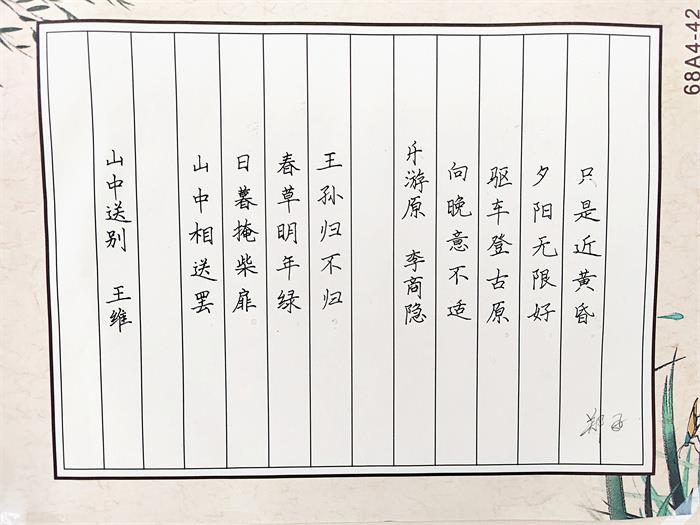 山中送别 王维
山中相送罢
日暮掩柴扉
春草明年绿
王孙归不归
乐游原 李商隐
向晚意不适
驱车登古原
夕阳无限好
只是近黄昏
郑
68A4-42